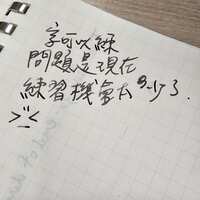 字可以練
問題是現在
練習機會太少了.
>''<